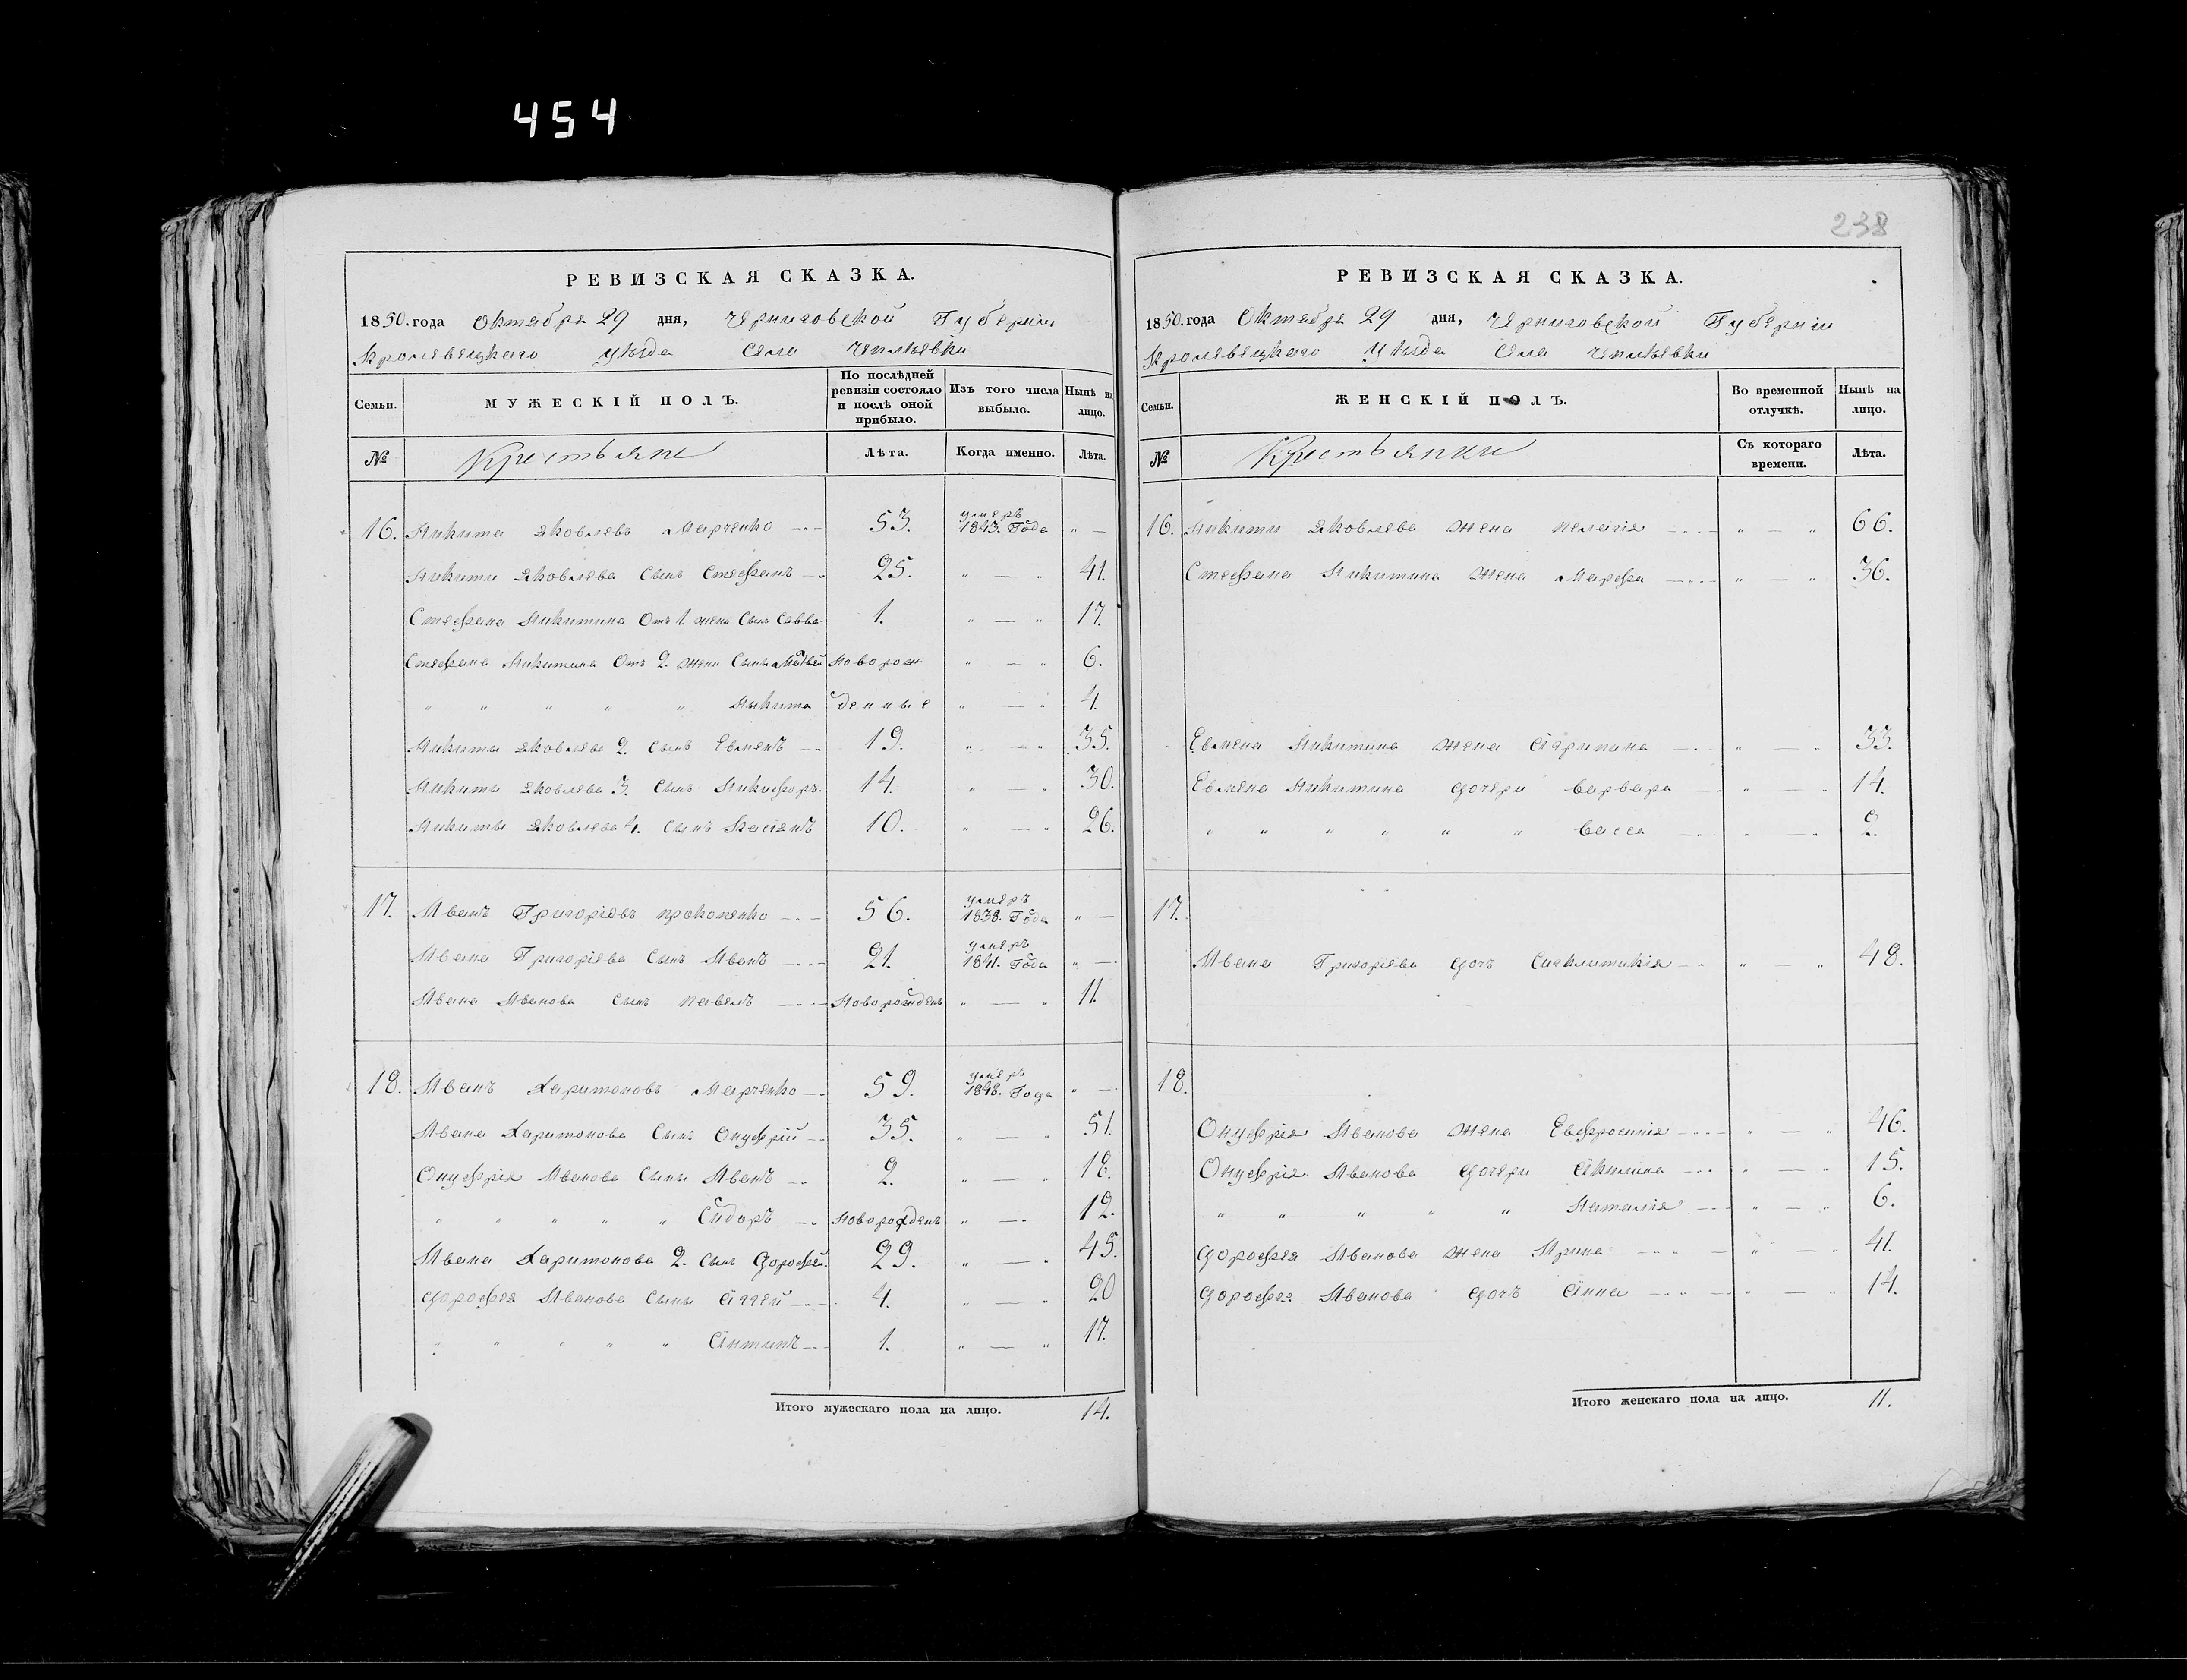 454
РЕВИЗСКАЯ СКАЗКА.
1850. года Октября 29 дня, Черниговской Губерніи
Кролевецкаго уѣзда Села Чепліевки
Семьи. МУЖЕСКІЙ ПОЛЪ. По послѣдней ревизіи состояло и послѣ оной прибыло. Изъ того числа выбыло. Нынѣ на лицо.
№ Крестьяне Лѣта. Когда именно. Лѣта.
16. Никита Яковлевъ Марченко 53. умеръ 1843. Года " —
Никити Яковлева Сынъ Стефанъ 25. " — " 41.
Стефана Никитина Отъ 1. жены Сынъ Савва 1. " — " 17.
Стефана Никитина Отъ 2. жени Сыны Матвей Новорож " — " 6.
" " " " " Никита денные " — " 4.
Никиты Яковлева 2. Сынъ Евменъ 19. " — " 35.
Никиты Яковлева 3. Сынъ Никифоръ 14. " — " 30.
Никиты Яковлева 4. Сынъ Касіянъ 10. " — " 26.
17. Иванъ Григоріевъ Прокопенко 56. умеръ 1838. Года " —
Ивана Григоріева Сынъ Иванъ 21. умеръ 1841. Года " —
Ивана Иванова Сынъ Павелъ Новорожденъ " — " 11.
18. Иванъ Харитоновъ Марченко 59. умеръ 1848. Года " —
Ивана Харитонова Сынъ Онуфрій 35. " — " 51.
Онуфрія Иванова Сыны Иванъ 2. " — " 18.
" " " " " Сидоръ Новорожденъ " — 12.
Ивана Харитонова 2. Сынъ Дорофей 29. " — " 45.
Дорофея Иванова Сыны Аггей 4. " — " 20
" " " " " Антипъ 1. " — " 17.
Итого мужескаго пола на лицо. 14.
238
РЕВИЗСКАЯ СКАЗКА.
1850. года Октября 29 дня, Черниговской Губерніи
Кролевецкаго Уѣзда Села Чепліевки
Семьи. ЖЕНСКІЙ ПОЛЪ. Во временной отлучкѣ. Нынѣ на лицо.
№ Крестьянки Съ котораго времени. Лѣта.
16. Никити Яковлева жена Пелагія " — " 66.
Стефана Никитина жена Марфа " — " 36.
Евмена Никитина жена Агрипина " — " 33.
Евмена Никитина дочери Варвара " — " 14.
" " " " " " Васса " — " 2.
17.
Ивана Григоріева дочъ Сигклитикія " — " 48.
18.
Онуфрія Иванова жена Евфросинія " — " 46.
Онуфрія Иванова дочери Акилина " — " 15.
" " " " " Наталія " — " 6.
Дорофея Иванова жена Ирина " — " 41.
Дорофея Иванова дочъ Анна " — " 14.
Итого женскаго пола на лицо. 11.